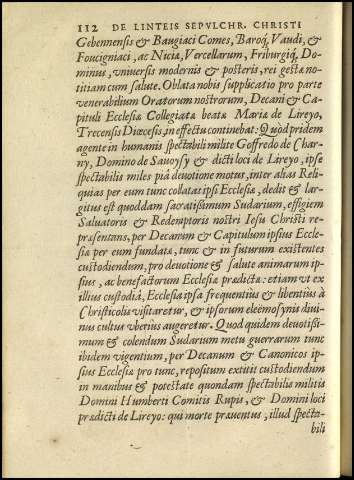 112 DE LINTEIS SEPVLCHR. CHRISTI
Gebennensis & Baugiaci Comes, Baroq́, Vaudi, &
Foucigniaci, ac Niciæ, Vercellarum, Friburgiq́, Do-
minus, vniuersis modernis & posteris, rei gestæ no-
titiam cum salute. Oblata nobis supplicatio pro parte
venerabilium Oratorum nostrorum, Decani & Ca-
pituli Ecclesiæ Collegiatæ beatæ Mariæ de Lireyo,
Trecensis Diœcesis, in effectu continebat: Quòd pridem
agente in humanis spectabili milite Goffredo de Char-
ny, Domino de Sauoysy & dicti loci de Lireyo, ipse
spectabilis miles piâ deuotione motus, inter alias Reli-
quias per eum tunc collatas ipsi Ecclesiæ, dedit & lar-
gitus est quoddam sacratissimum Sudarium, effigiem
Saluatoris & Redemptoris nostri Iesu Christi re-
præsentans, per Decanum & Capitulum ipsius Eccle-
siæ per eum fundatæ, tunc & in futurum existentes
custodiendum, pro deuotione & salute animarum ip-
sius, ac benefactorum Ecclesiæ prædictæ: etiam vt ex
illius custodiâ, Ecclesia ipsa frequentius & libentius à
Christicolis visitaretur, & ipsorum eleemosynis diui-
nus cultus vberius augeretur. Quod quidem deuotissi-
mum & colendum Sudarium metu guerrarum tunc
ibidem vigentium, per Decanum & Canonicos ip-
sius Ecclesiæ pro tunc, repositum extitit custodiendum
in manibus & potestate quondam spectabilis militis
Domini Humberti Comitis Rupis, & Domini loci
prædicti de Lireyo: qui morte præuentus, illud specta-
bili